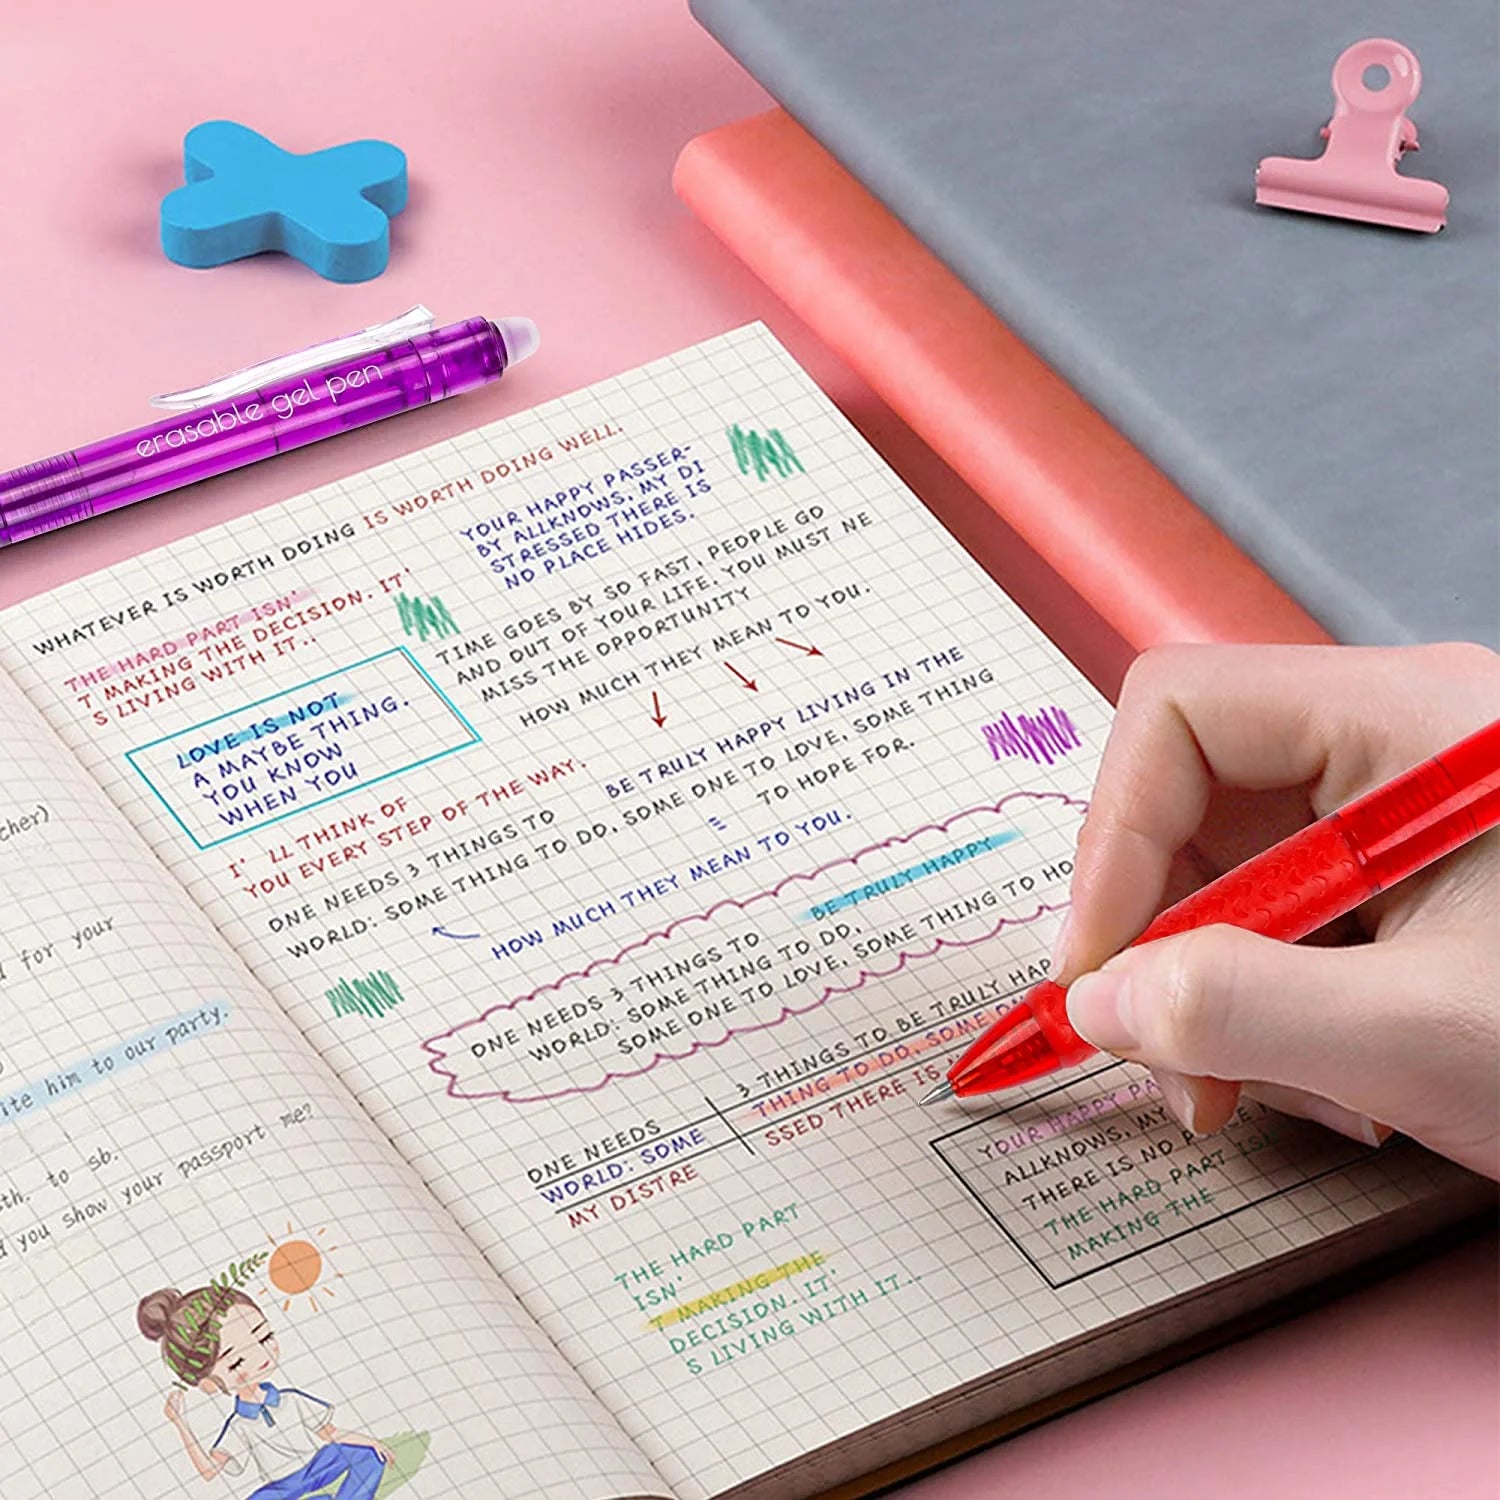 erasable gel pen
WHATEVER IS WORTH DOING IS WORTH DOING WELL.
THE HARD PART ISN'
T MAKING THE DECISION. IT'
S LIVING WITH IT..
YOUR HAPPY PASSER-
BY ALLKNOWS, MY DI
STRESSED THERE IS
NO PLACE HIDES.
LOVE IS NOT
A MAYBE THING.
YOU KNOW
WHEN YOU
TIME GOES BY SO FAST, PEOPLE GO
AND OUT OF YOUR LIFE. YOU MUST NE
MISS THE OPPORTUNITY
HOW MUCH THEY MEAN TO YOU.
I' LL THINK OF
YOU EVERY STEP OF THE WAY.
BE TRULY HAPPY LIVING IN THE
ONE NEEDS 3 THINGS TO
WORLD: SOME THING TO DO, SOME ONE TO LOVE, SOME THING
TO HOPE FOR.
HOW MUCH THEY MEAN TO YOU.
BE TRULY HAPPY
ONE NEEDS 3 THINGS TO
WORLD: SOME THING TO DO,
SOME ONE TO LOVE, SOME THING TO HO
3 THINGS TO BE TRULY HAP
ONE NEEDS
THING TO DO, SOME ON
WORLD: SOME
SSED THERE IS
MY DISTRE
YOUR HAPPY PA
ALLKNOWS, MY
THERE IS NO
THE HARD PART
MAKING THE
THE HARD PART
ISN'
T MAKING THE
DECISION. IT'
S LIVING WITH IT...
cher)
for your
ite him to our party.
th. to sb.
you show your passport me?